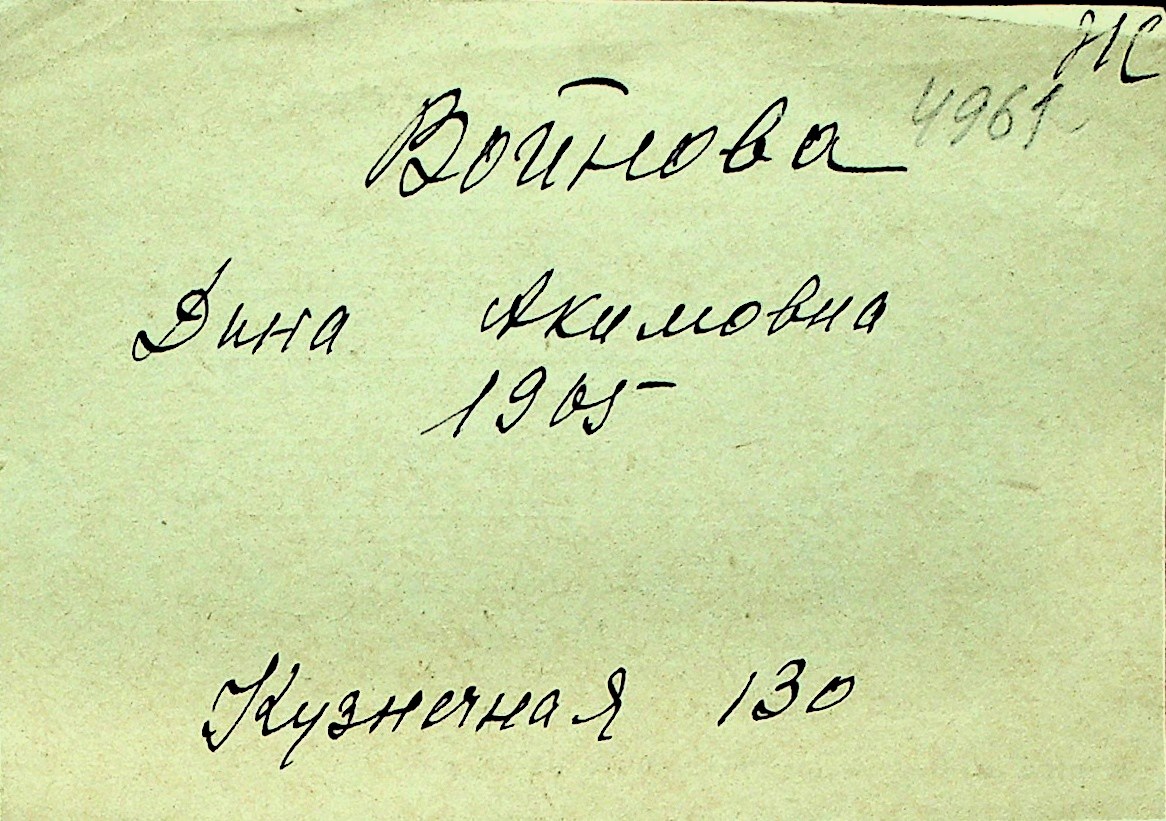 НС
Войнова 4961
Дина Акимовна
1905
Кузнечная 130